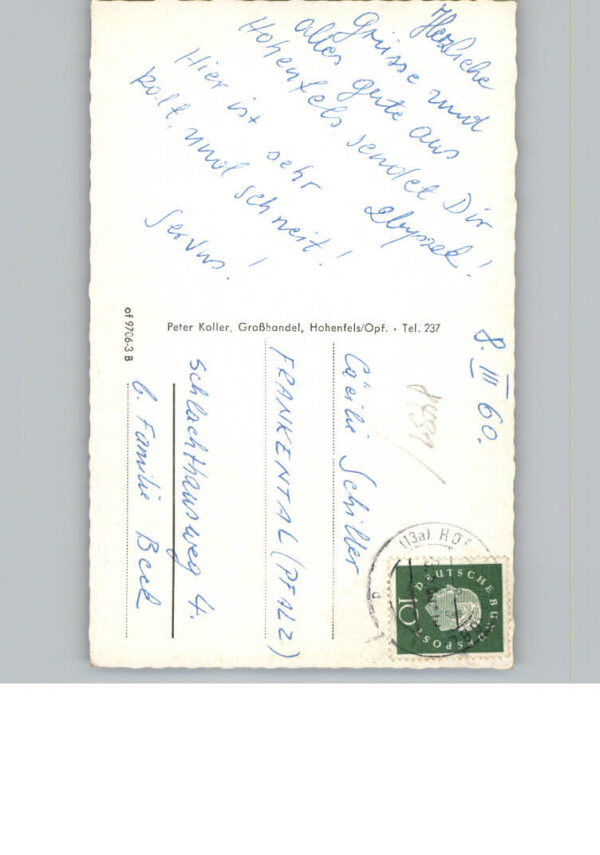 Herzliche
Grüsse und
alles gute aus
Hohenfels, sendet Dir
Hier ist sehr
kalt, und schneit!
Servus!
Peter Koller, Großhandel, Hohenfels/Opf. · Tel. 237
of 9706-3 B
8. III 60.
Cäcilie Schiller
FRANKENTAL (PFALZ)
Schlachthausweg 4.
b. Familie Beck
(13a) HO
DEUTSCHE BUNDESPOST
10